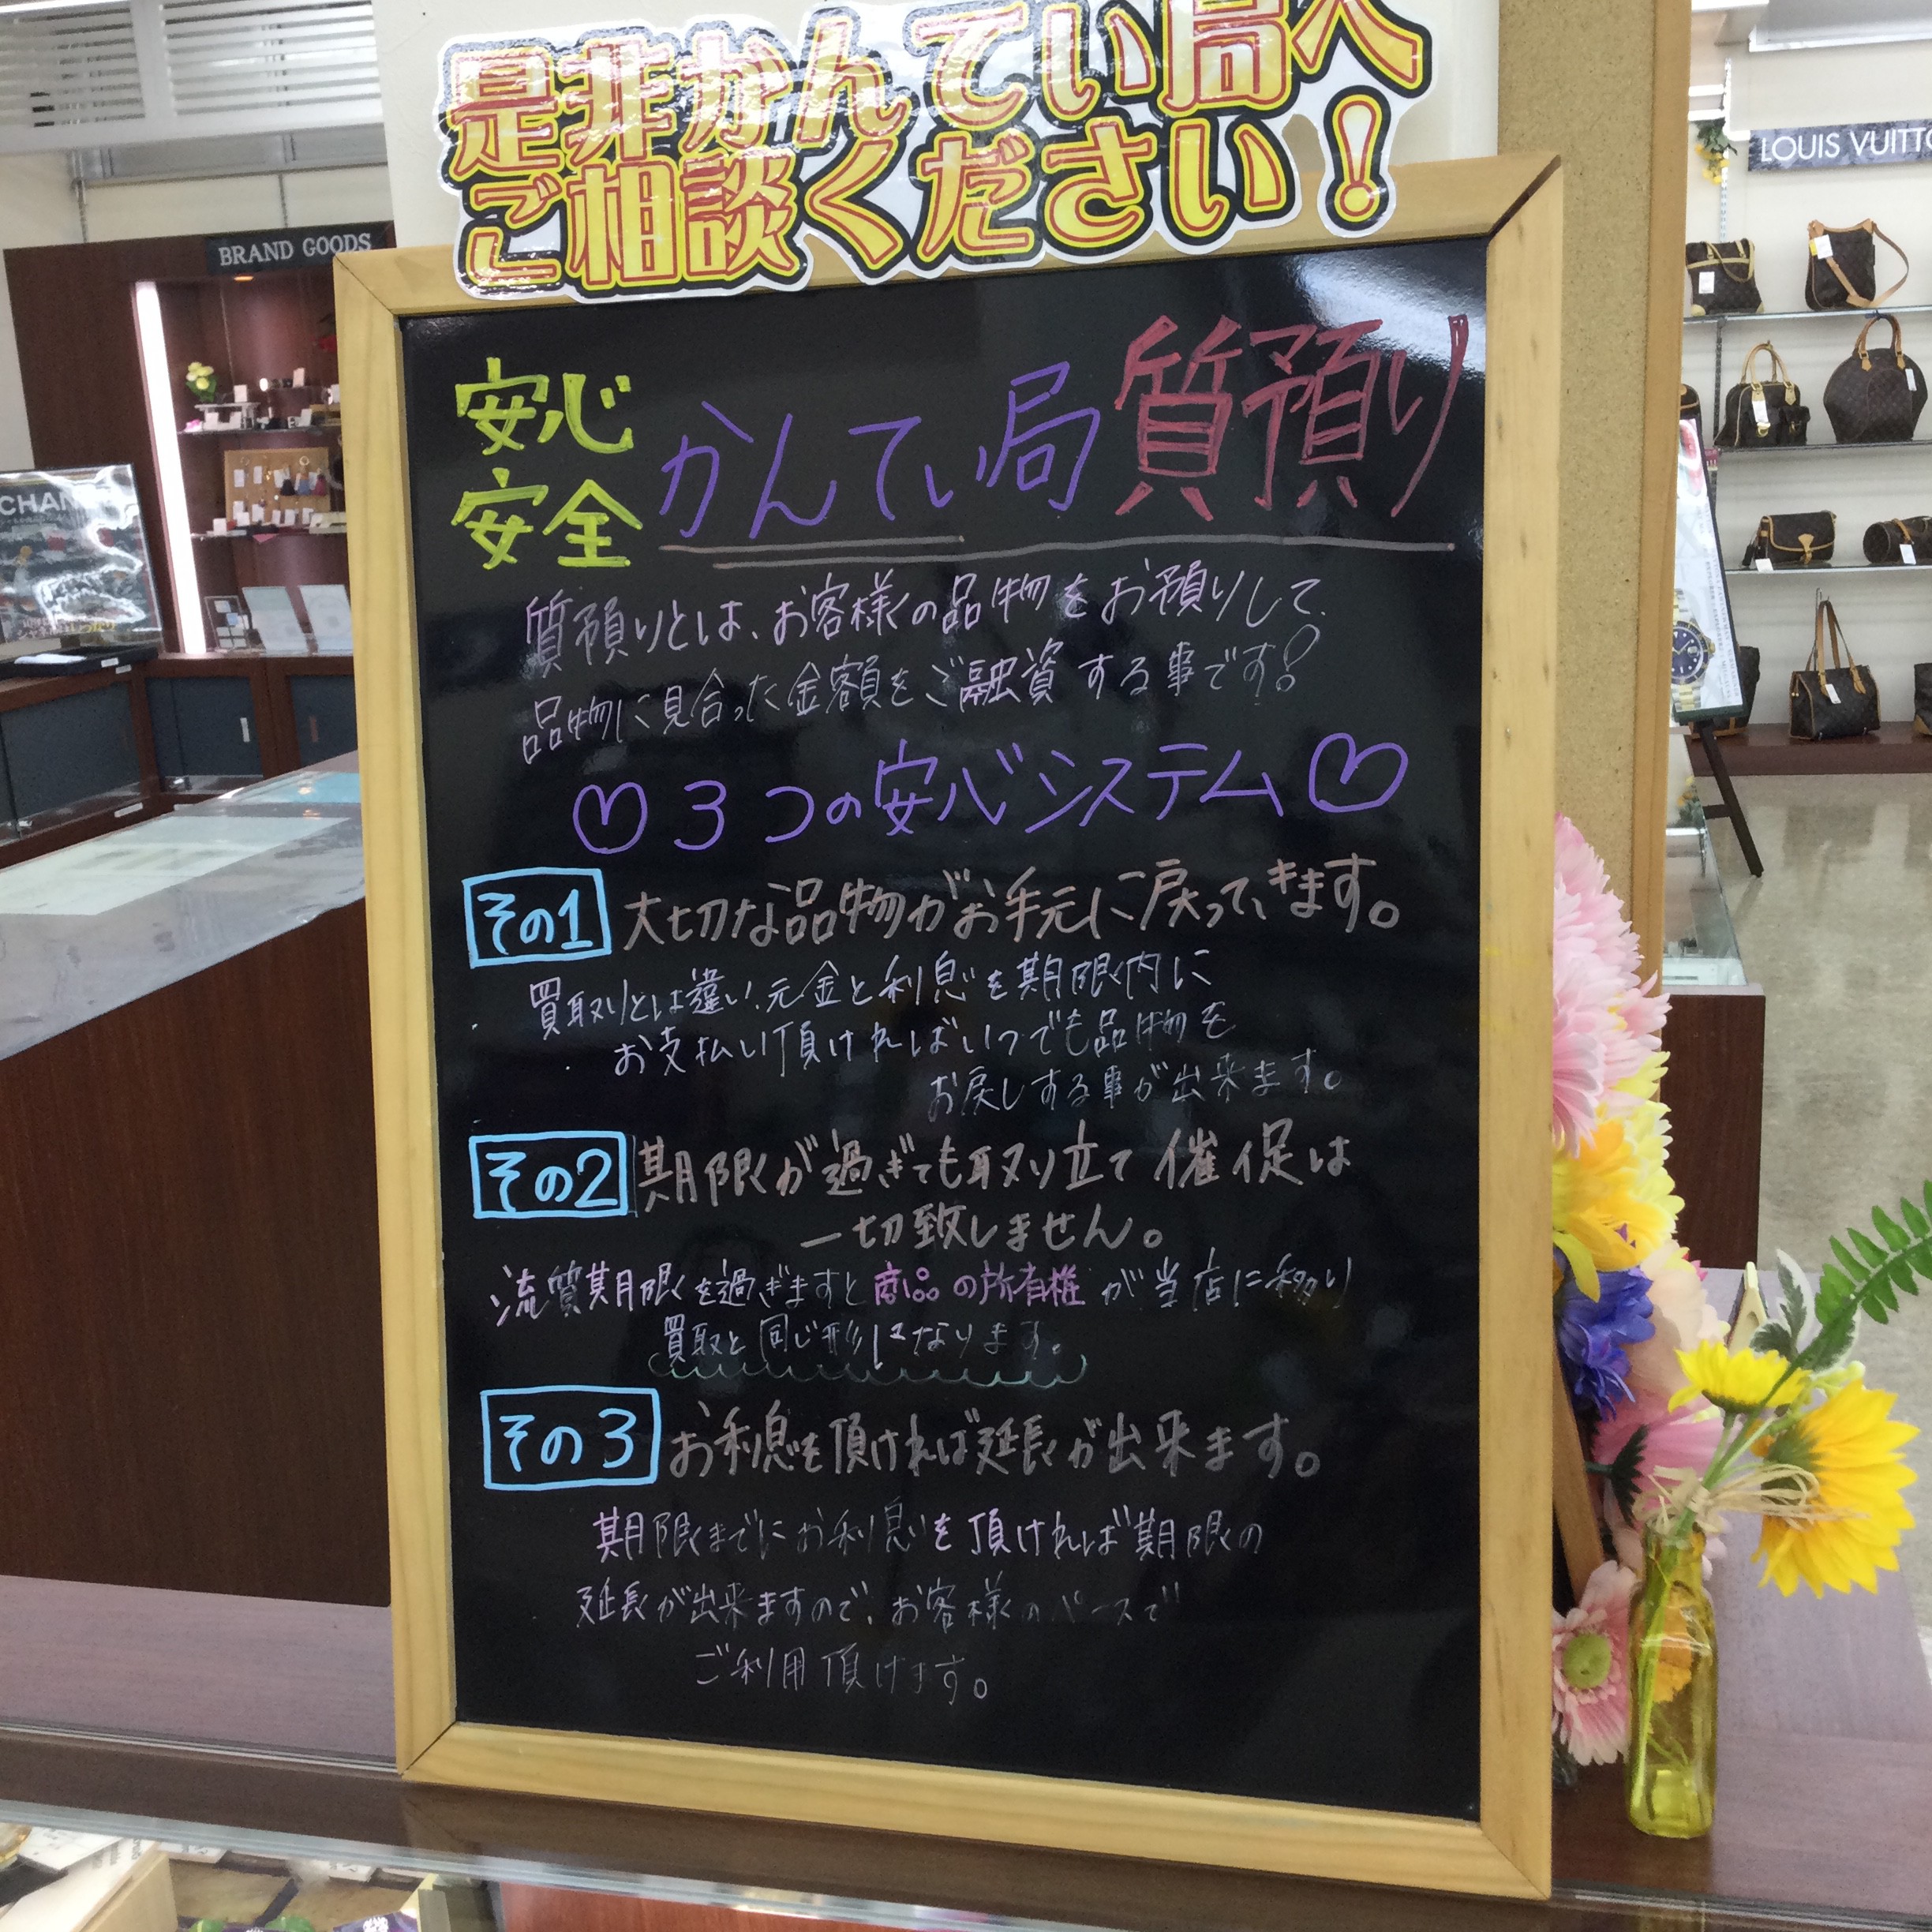 是非かんてい局へ
ご相談ください！
BRAND GOODS
LOUIS VUITTO
CHAN
安心
安全
かんてい局質預り
質預りとは、お客様の品物をお預りして、
品物に見合った金額をご融資する事です！
♡3つの安心システム♡
その1 大切な品物がお手元に戻ってきます。
買取りとは違い、元金と利息を期限内に
お支払い頂ければいつでも品物を
お戻しする事が出来ます。
その2 期限が過ぎても取り立て催促は
一切致しません。
流質期限を過ぎますと商品の所有権が当店に移り
買取と同じ形になります。
その3 お利息を頂ければ延長が出来ます。
期限までにお利息を頂ければ期限の
延長が出来ますので、お客様のペースで
ご利用頂けます。